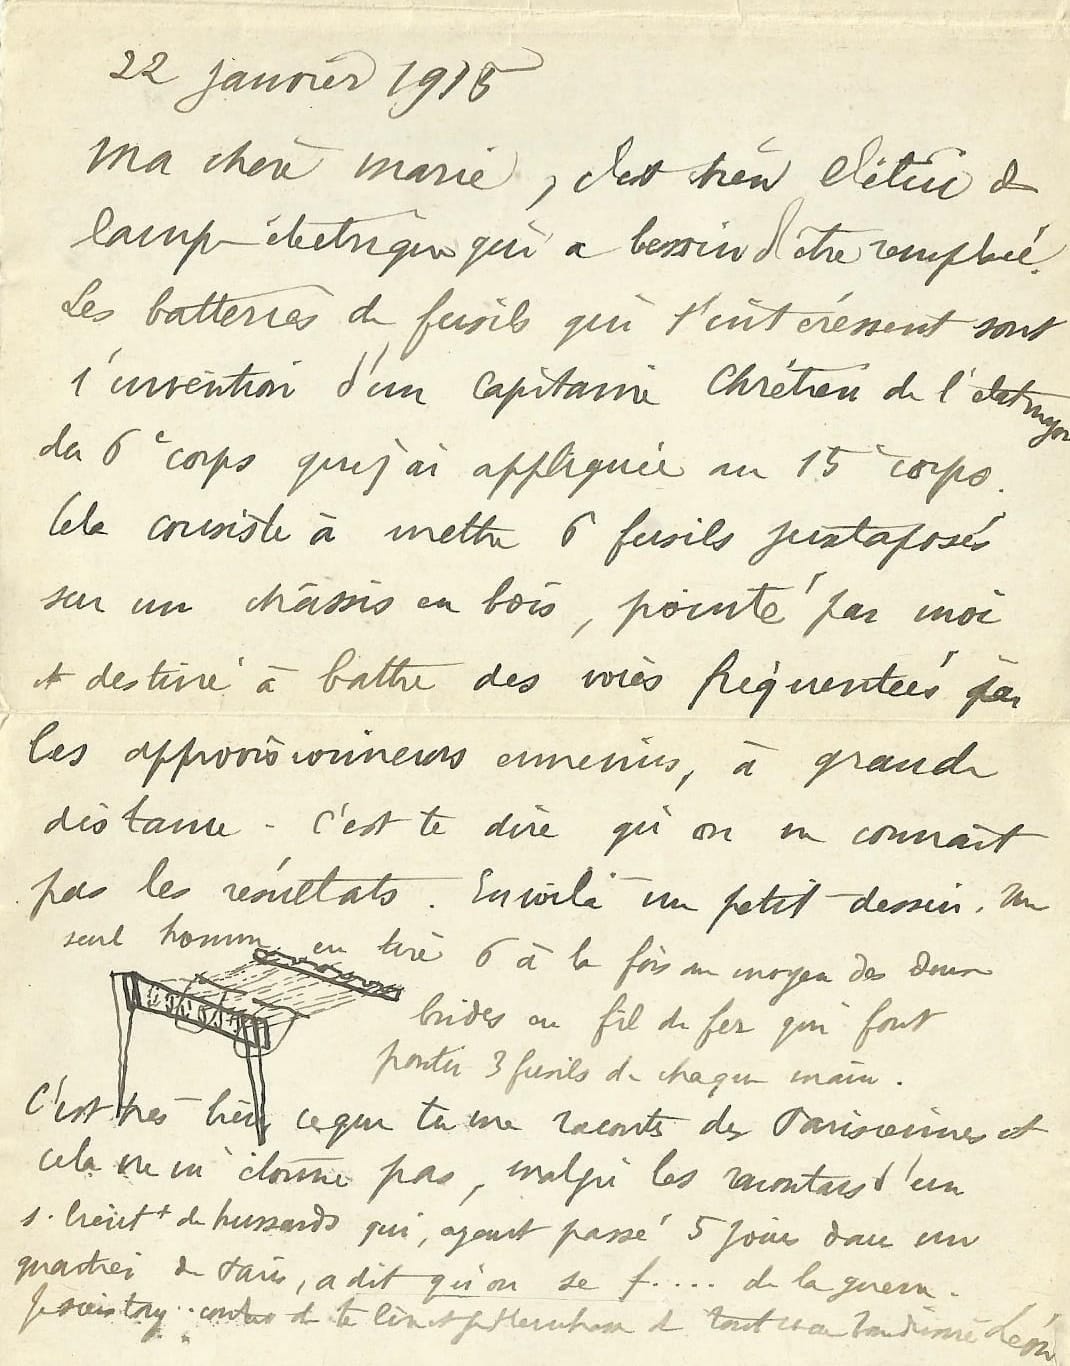 22 janvier 1915
Ma chère Marie, c'est bien l'étui de
lampe électrique qui a besoin d'être remplacé.
Les batteries de fusils qui t'intéressent sont
l'invention d'un Capitaine Chrétien de l'état major
du 6e corps que j'ai appliquée au 15e corps.
Cela consiste à mettre 6 fusils juxtaposés
sur un châssis en bois, pointé par moi
et destiné à battre des voies fréquentées par
les approvisionneurs ennemis, à grande
distance - C'est te dire qu'on en connait
pas les résultats. En voilà un petit dessin. Un
seul homme en tire 6 à la fois au moyen des deux
brides en fil de fer qui font
partir 3 fusils de chaque main.
C'est très bien ce que tu me racontes des Parisiennes et
cela ne m'étonne pas, malgré les racontars d'un
s. lieutt de hussards qui, ayant passé 5 jours dans un
quartier de Paris, a dit qu'on se f.... de la guerre.
Je suis de te de tout Léon